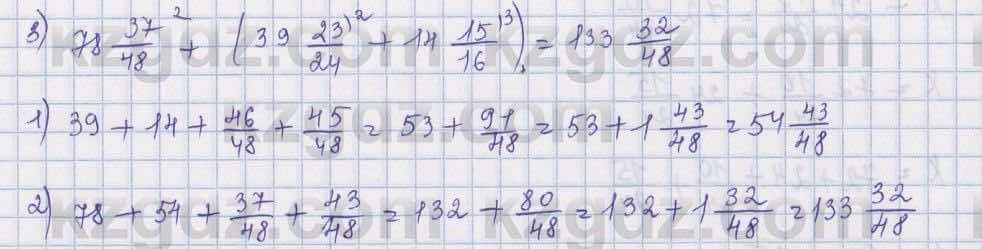 3) 78 37/48 ² + (39 23/24 ⁾² + 14 15/16 ⁾³) = 133 32/48
1) 39 + 14 + 46/48 + 45/48 = 53 + 91/48 = 53 + 1 43/48 = 54 43/48
2) 78 + 54 + 37/48 + 43/48 = 132 + 80/48 = 132 + 1 32/48 = 133 32/48